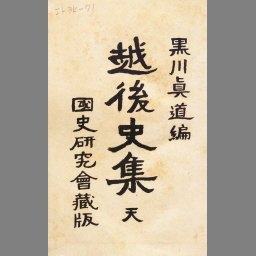 黒川眞道編
越後史集 天
國史研究會藏版